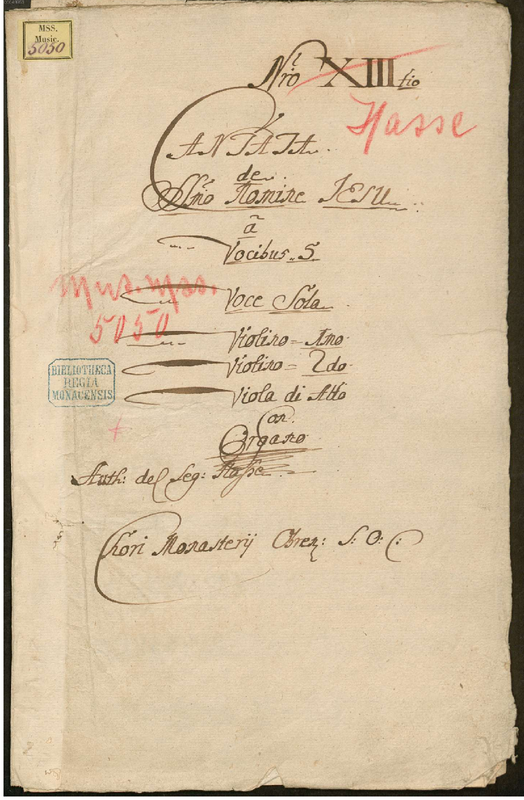 MSS.
Music.
5050
Nro XIII tio
Hasse
CANTATA
de
SSmo Nomine JESU
a
Vocibus. 5.
Mus. Mss.
5050
Voce Sola
Violino = Imo
Violino = 2do
Viola di Alto
BIBLIOTHECA
REGIA
MONACENSIS
con
Organo
Auth: del Seg: Hasse
Chori Monasterij S: O: C: